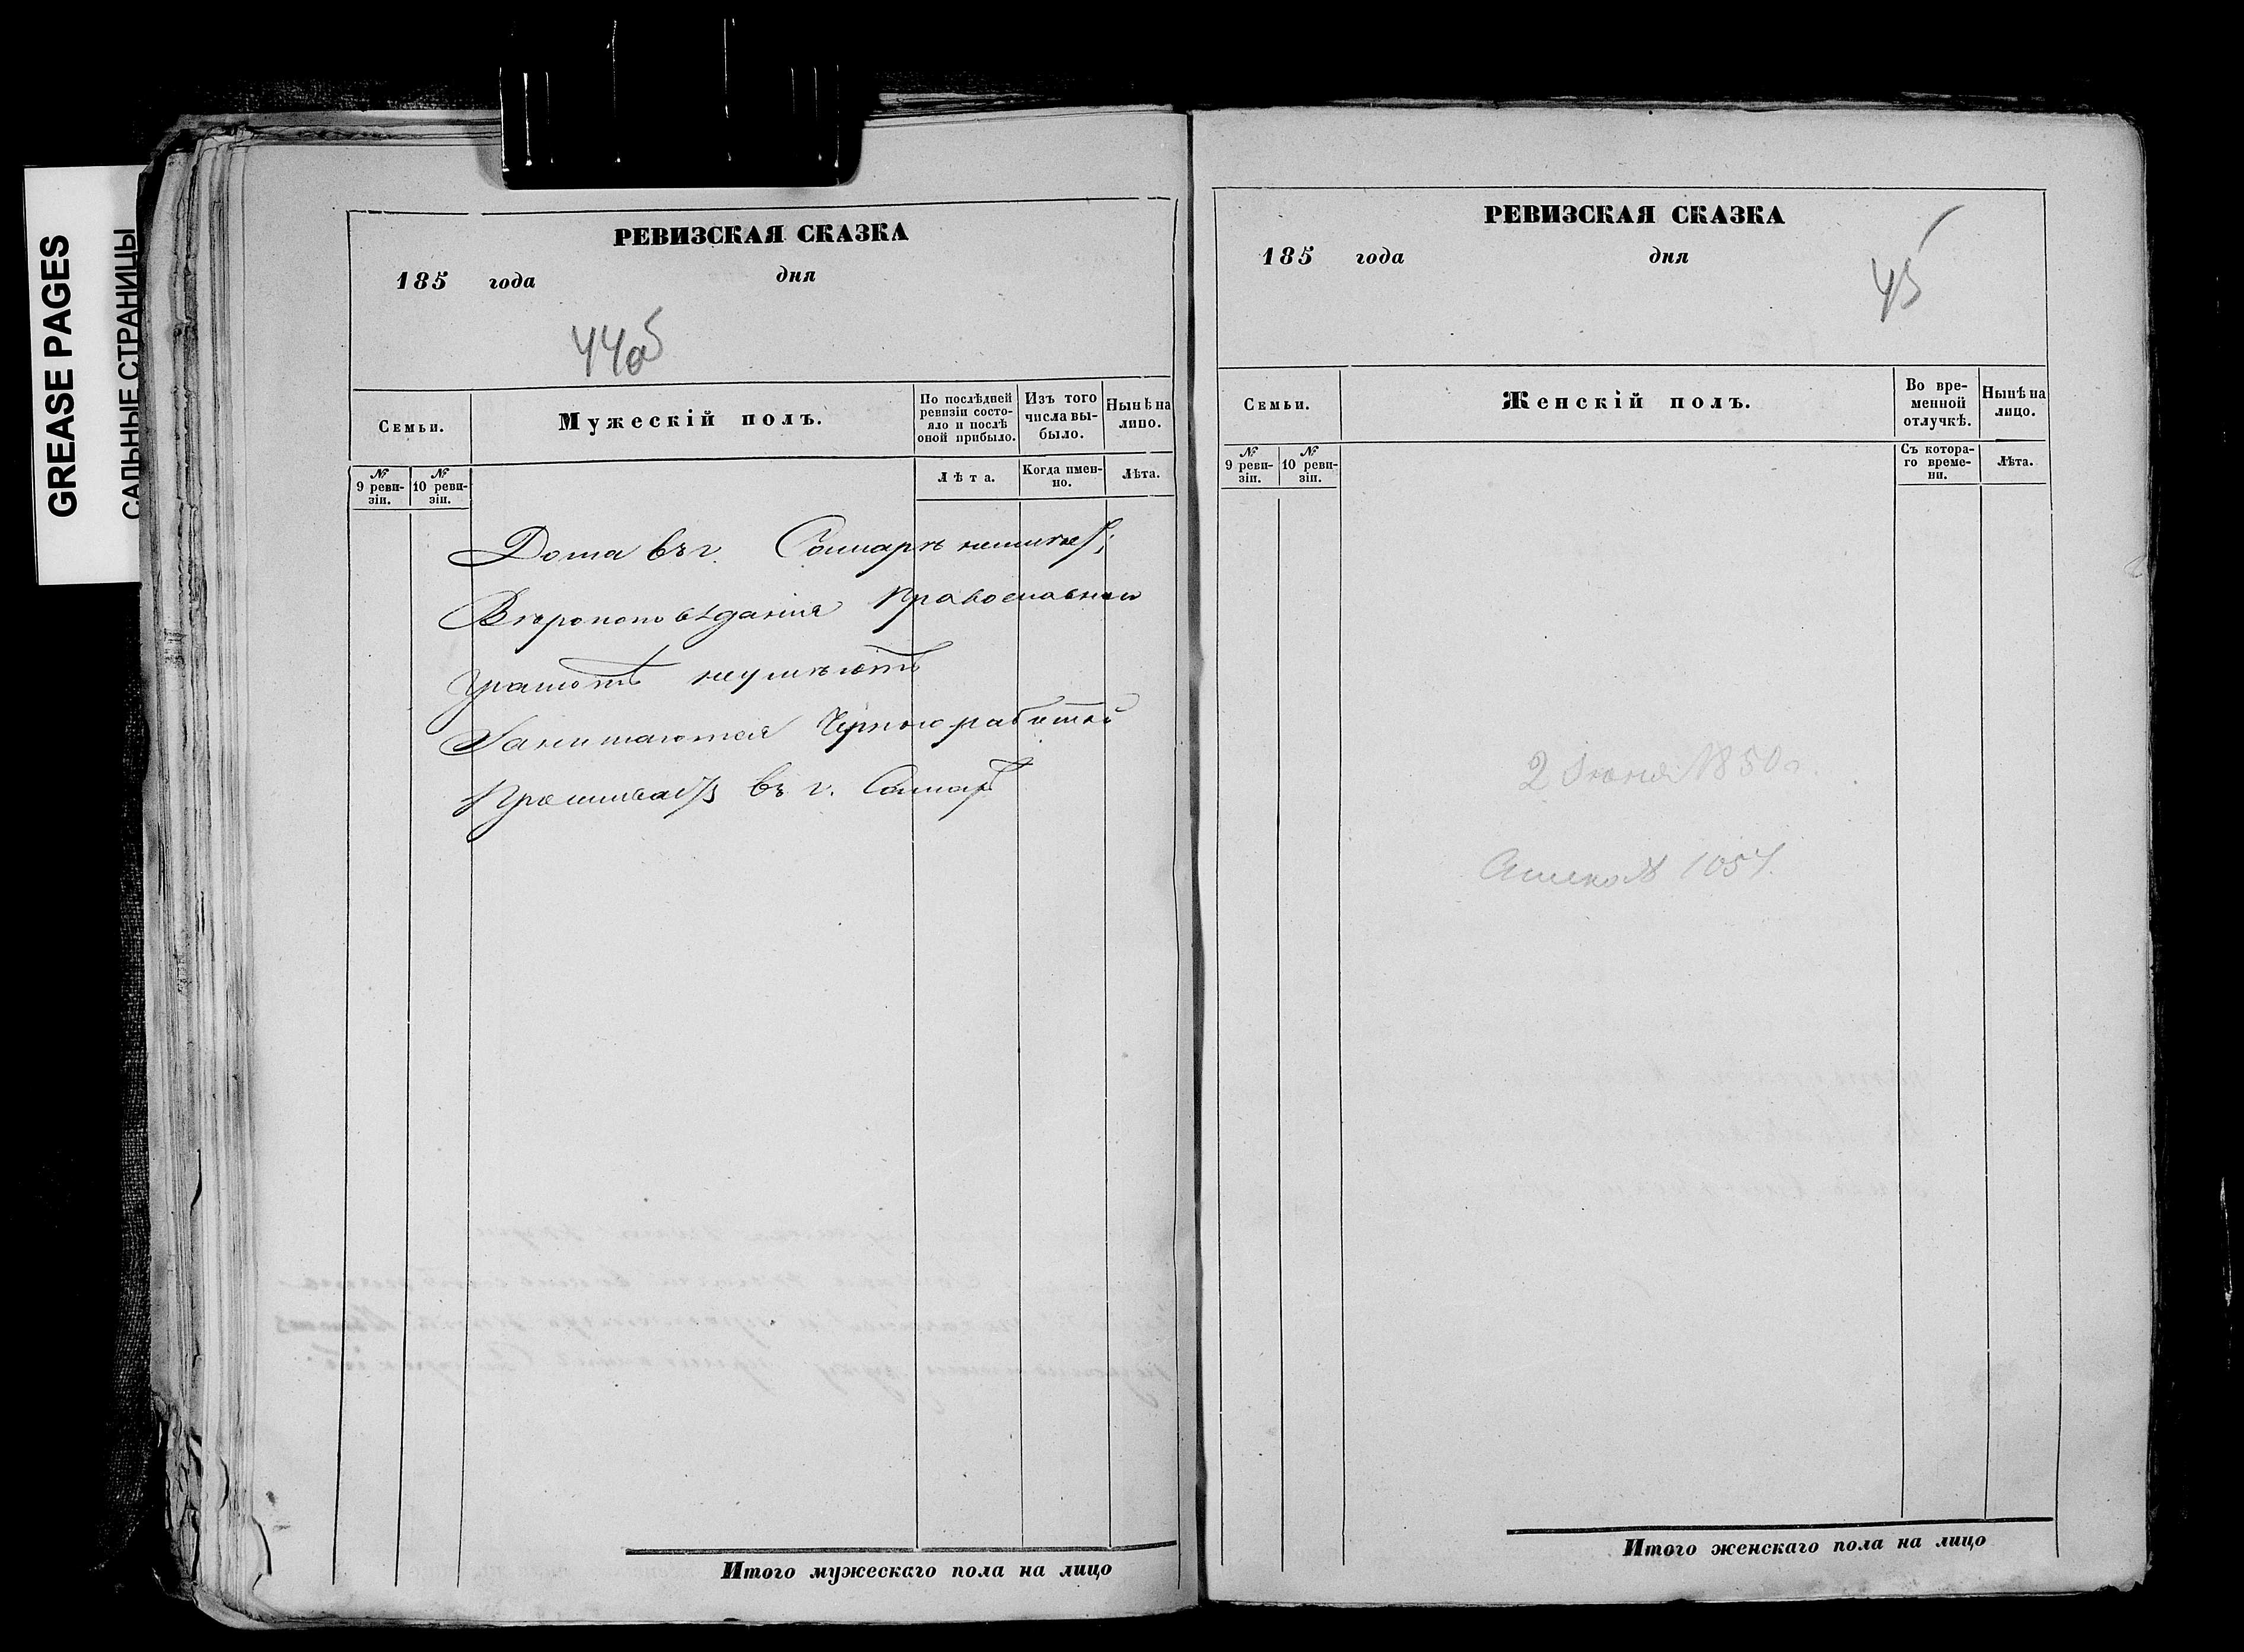 GREASE PAGES
САЛЬНЫЕ СТРАНИЦЫ
РЕВИЗСКАЯ СКАЗКА
185 года дня
44об
Семьи.
Мужескій полъ.
По послѣдней ревизіи состо-
яло и послѣ оной прибыло.
Изъ того числа вы-
было.
Нынѣ на лицо.
№ 9 реви-
зіи.
№ 10 реви-
зіи.
Лѣта.
Когда имен-
но.
Лѣта.
Дома въ г. Самарѣ
Вѣроисповѣданія Православнаго
Грамотѣ неумѣютъ
Занимаются Черною работой
въ г. Самарѣ
Итого мужескаго пола на лицо
РЕВИЗСКАЯ СКАЗКА
185 года дня
45
Семьи.
Женскій полъ.
Во вре-
менной отлучкѣ.
Нынѣ на лицо.
№ 9 реви-
зіи.
№ 10 реви-
зіи.
Съ котора-
го време-
ни.
Лѣта.
2 Июня 1850 г.
Итого женскаго пола на лицо